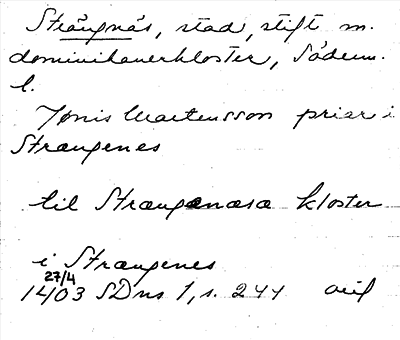 Strängnäs, stad, stift m.
dominikanerkloster, Söderm.
l.
Jönis Martensson prior i
Strængenes
til Strængenæsæ kloster
i Strængenes
27/4
1403 SDns 1, s. 244 avil